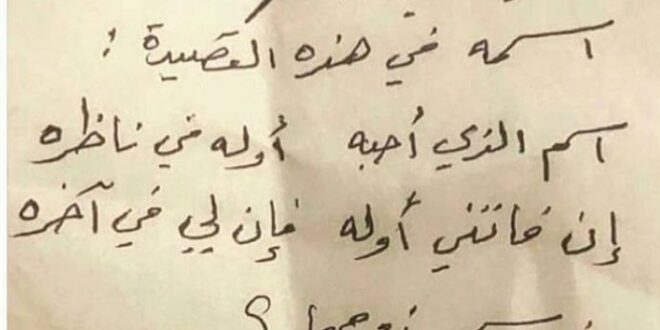 اسمه في هذه القصيدة :
اسم الذي أحبه أوله في ناظره
إن فاتني أوله فإن لي في آخره
زوجها ؟